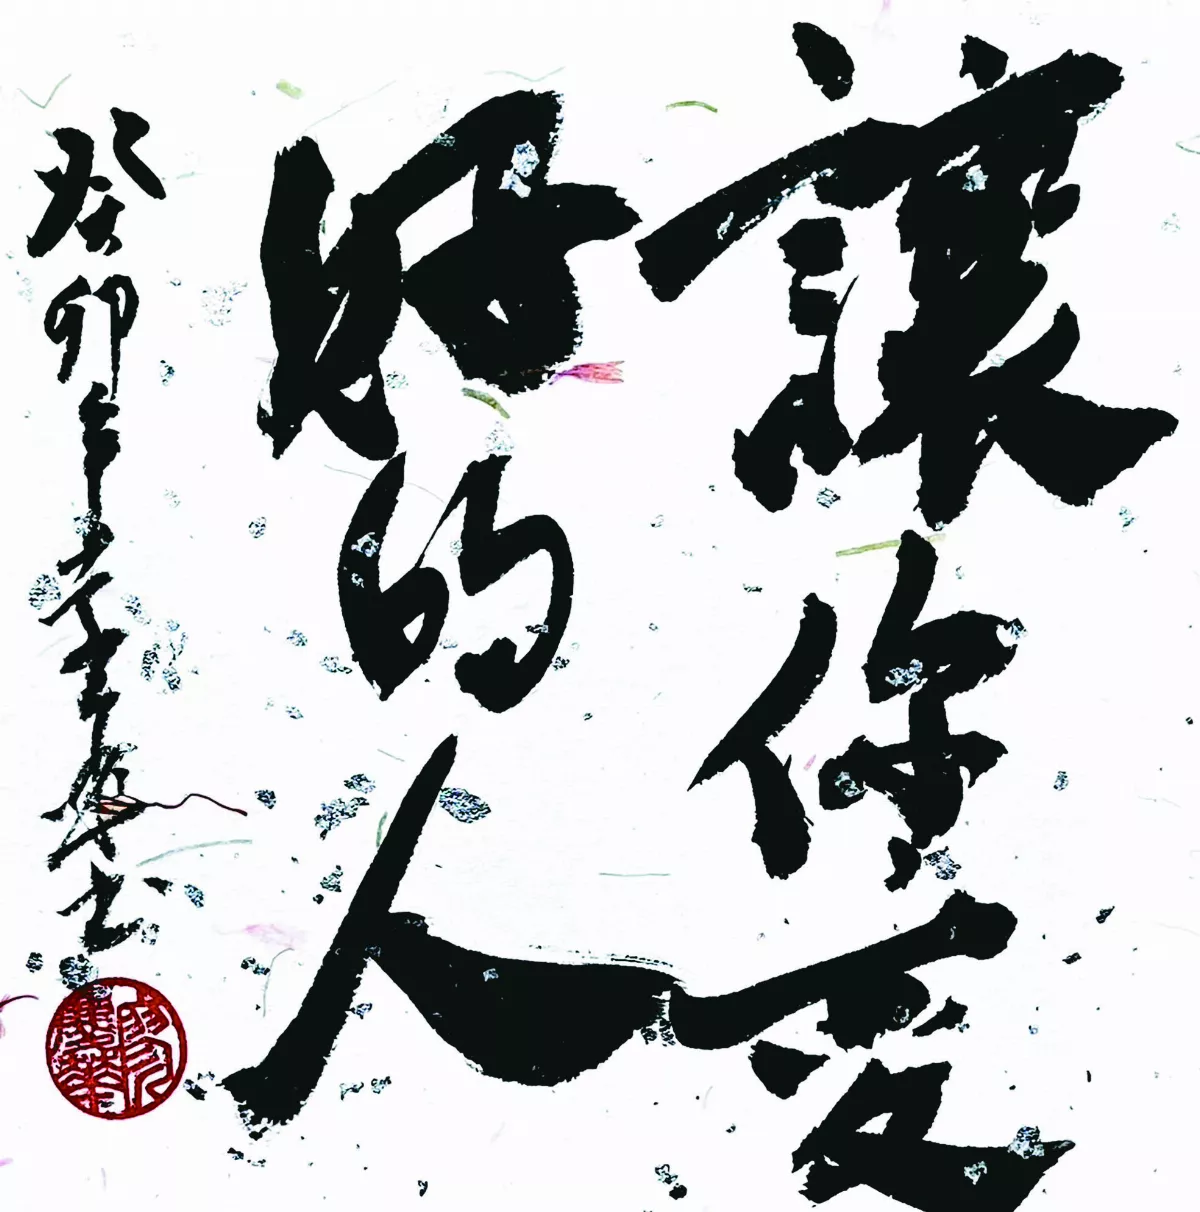 讓你变
好的人
癸卯年 书